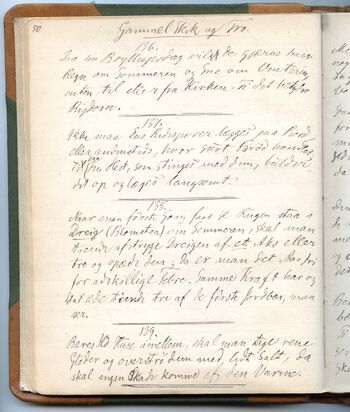 50
Gammel Skik og Tro.
136.
Paa en Bryllupsdag vilde de gjerne have
Regn om Sommeren og Sne om Vinteren
enten til eller fra Kirken. Ti det betyder
Rigdom.
137.
Ikke maa Sporer lægges paa Brød,
eller andensteds, hvor surt Brød
Hest, som stinges med dem,
det op og læges langsomt.
138.
Naar man første Gang faar se Rugen staa i
Dreig (Blomster) om Sommeren, skal man
stryge Dreigen af et Aks eller
tre og spæde dem; da er man det Aar fri
for adskillige Febre. Samme Kraft har og
at æde tre af de første Jordbær, man
ser.
139.
Køer imellem, skal man tage rene
Gløder og overstrø dem med lidt Salt, da
skal ingen Skade komme af den Varme.